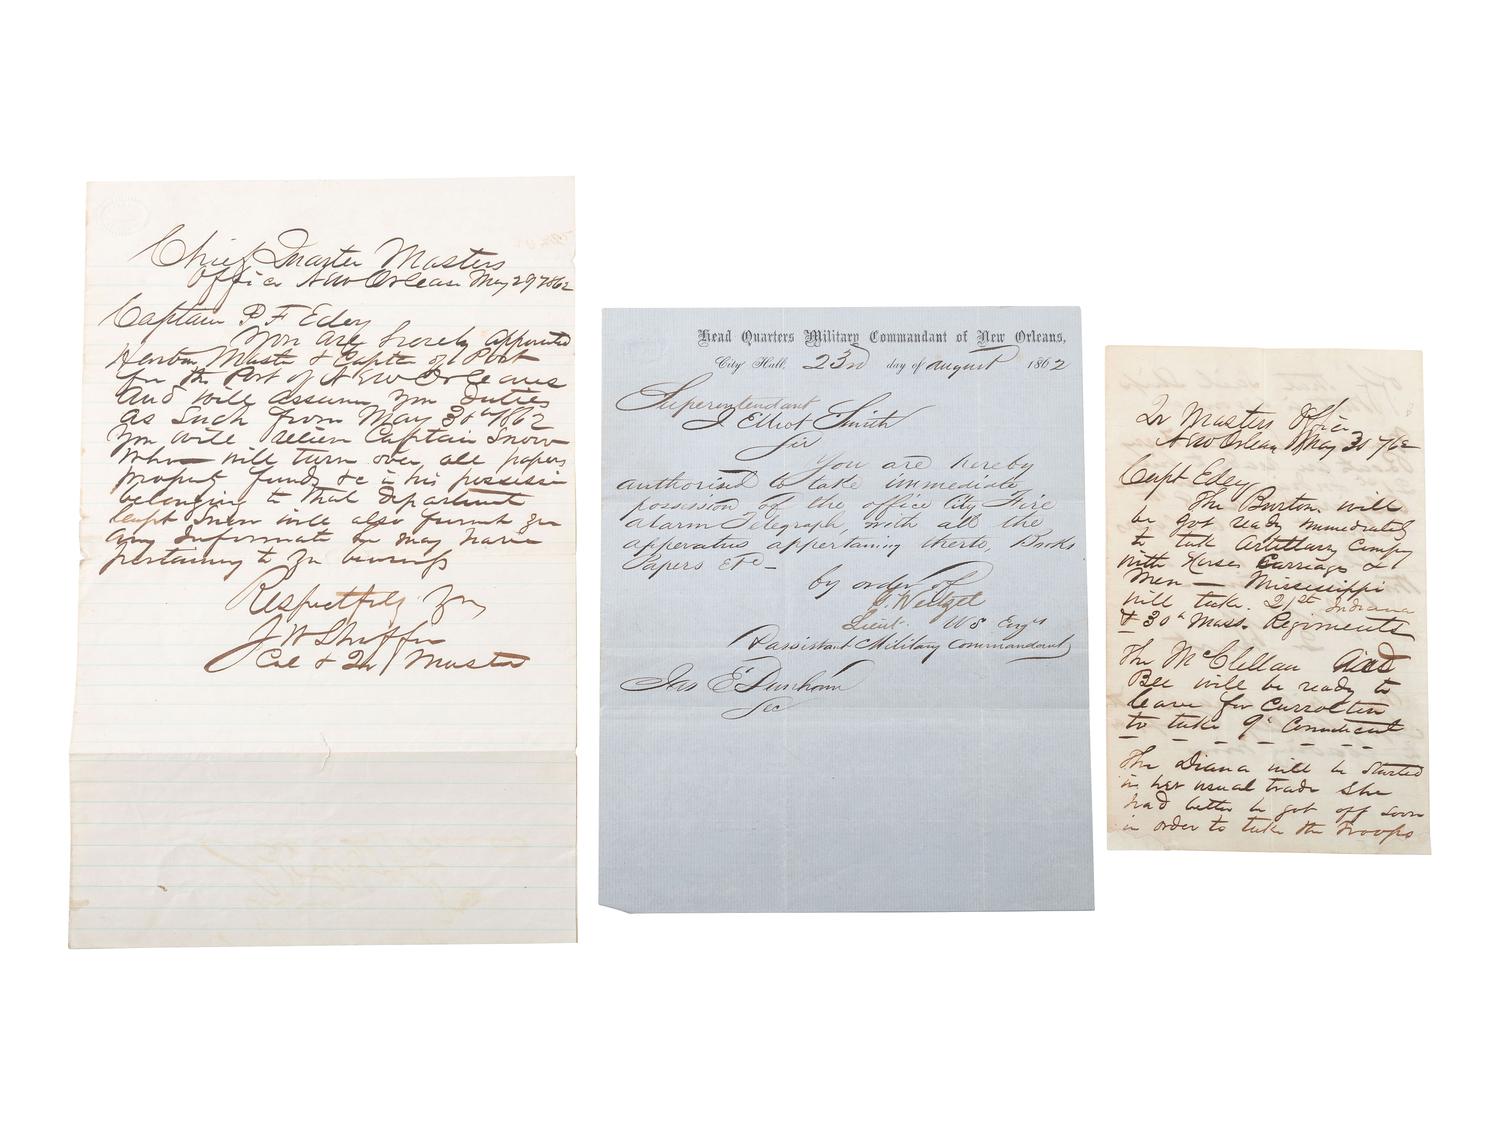 Chief Quarter Masters
Office New Orleans May 29 1862
Captain P F Edey
You are hereby appointed
Harbor Master & Captn of Port
for the Port of New Orleans
and will assume your Duties
as Such from May 30th 1862
You will relieve Captain Snow
who will turn over all papers
property funds &c in his possession
belonging to that Department
Capt Snow will also furnish you
any Information he may have
pertaining to your business
Respectfully Yours
J W Shaffer
Col & Qr Master
Head Quarters Military Commandant of New Orleans,
City Hall, 23rd day of August 1862
Superintendant
J Elliot Smith
Sir
You are hereby
authorised to take immediate
possession of the office City Fire
Alarm Telegraph, with all the
apperatus appertaining therto, Books
Papers Etc
by order of
G. Weitzel
Lieut. US Engrs
& assistant Military Commandant
Jas E Dunham
Sec
Qr Masters Office
New Orleans May 30 /62
Capt Edey
The Burton will
be got ready immediately
to take Artillary Company
with Horses Carriages &
Men — Mississippi
will take 21st Indiana
& 30th Mass. Regiments
The McClellan and
Bee will be ready to
leave for Carrolton
to take 9th Connecticut
The Diana will be started
in her usual trade She
had better be got off soon
in order to take the Troops